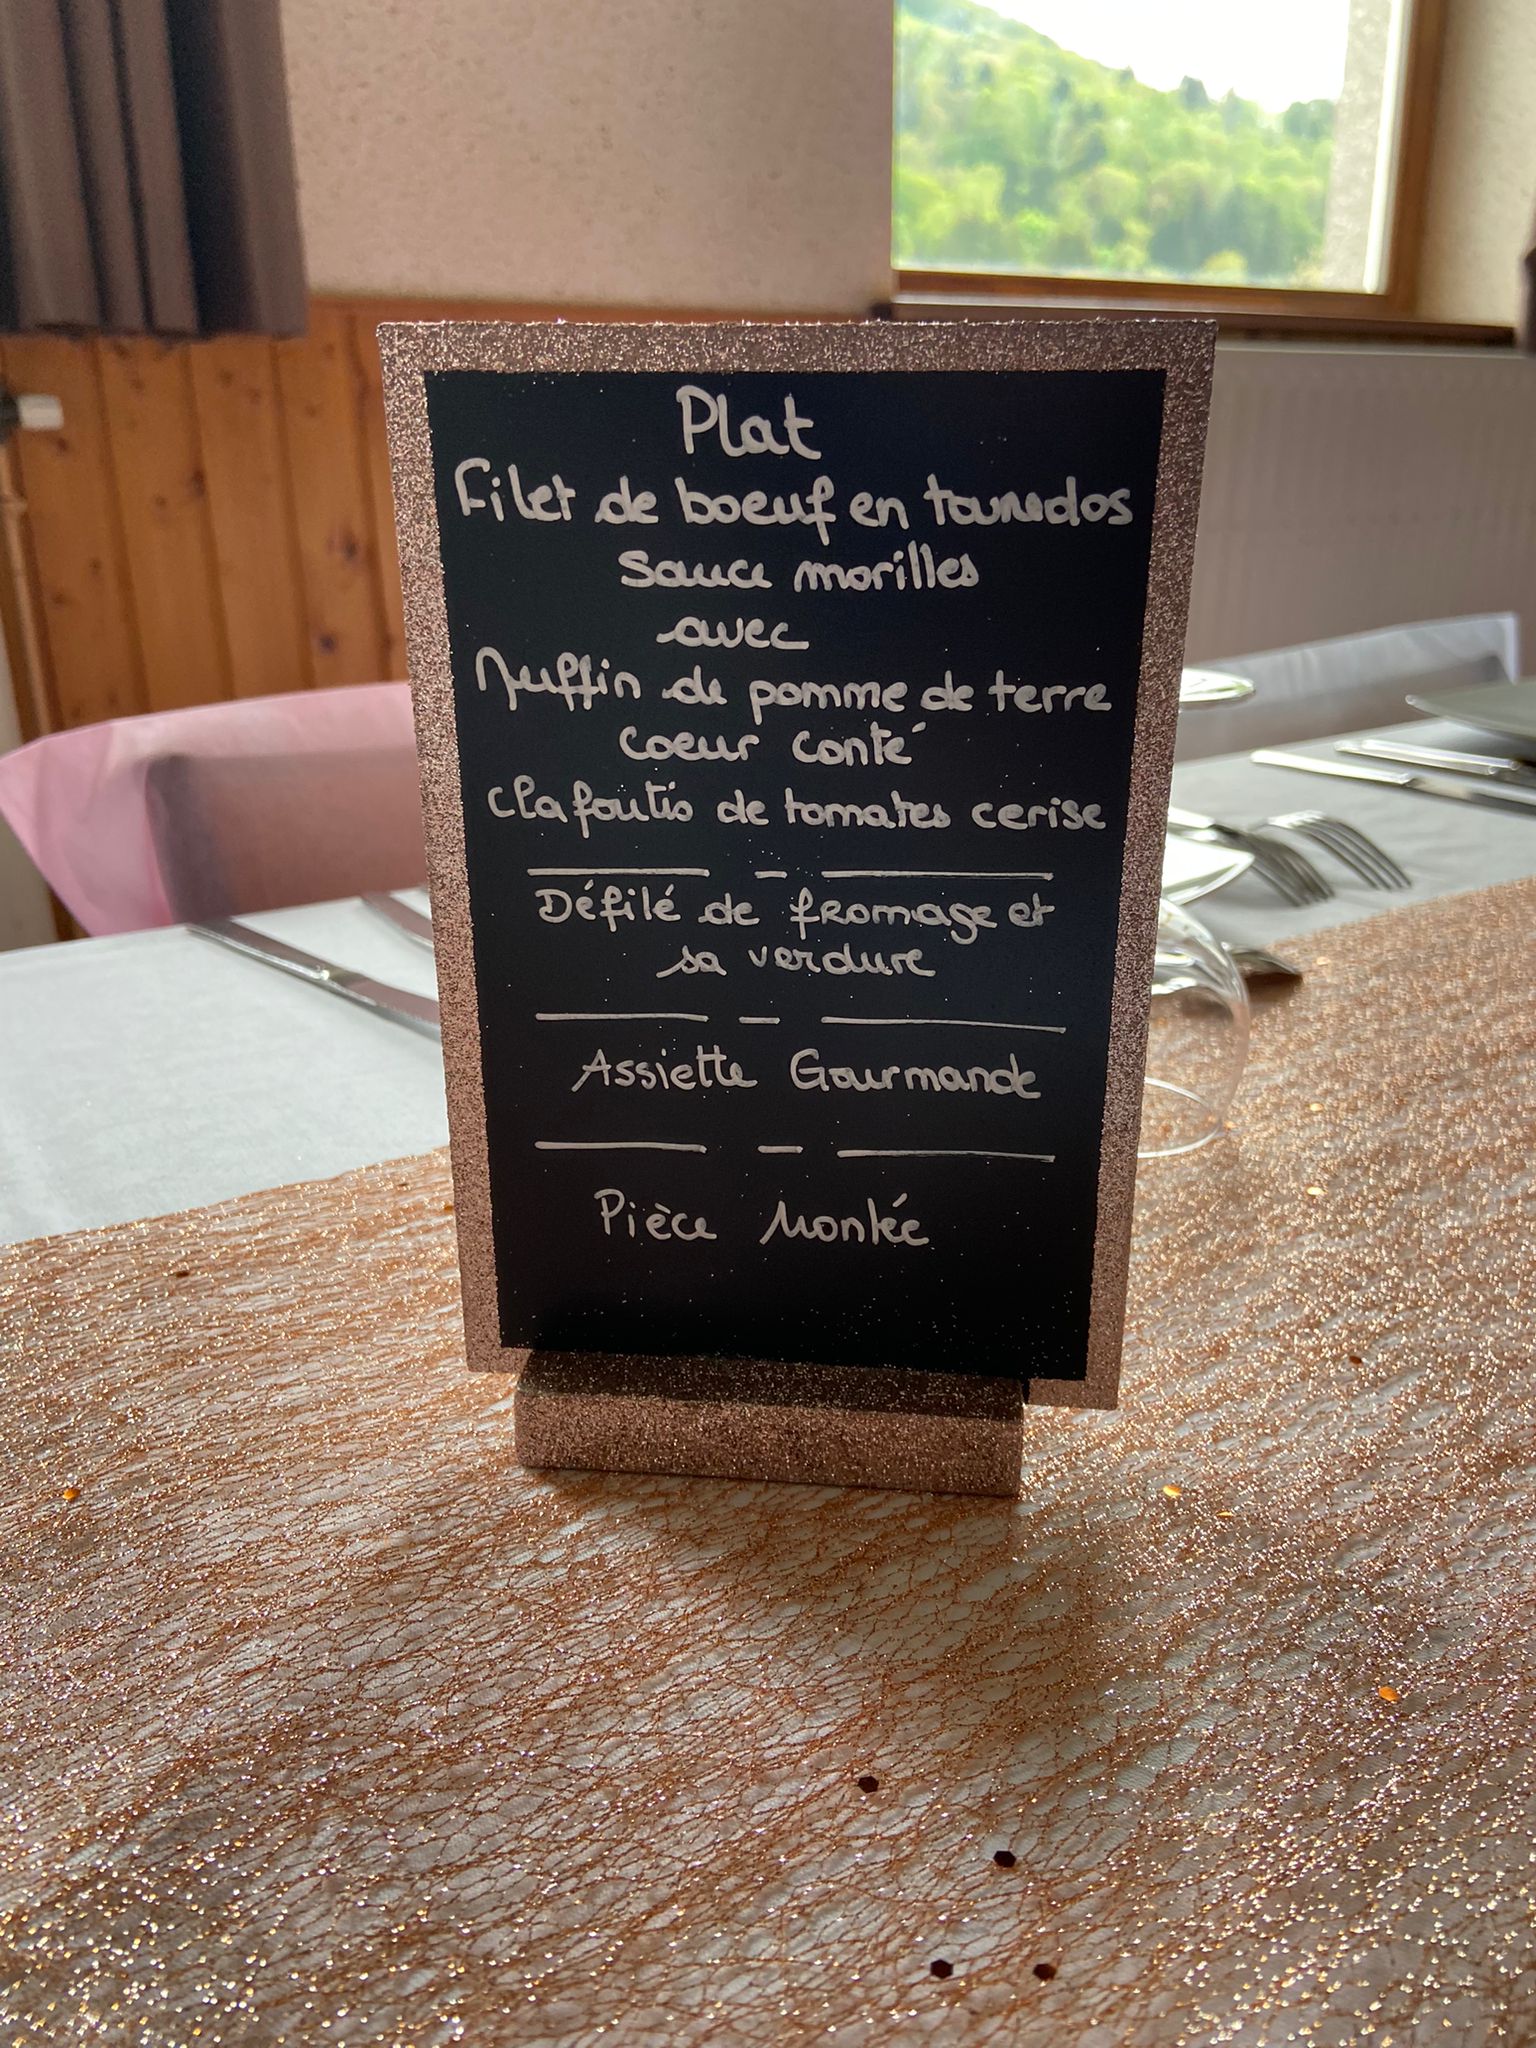 Plat
Filet de boeuf en tournedos
Sauce morilles
avec
Muffin de pomme de terre
coeur conté
Clafoutis de tomates cerise
Défilé de fromage et
sa verdure
Assiette Gourmande
Pièce Montée